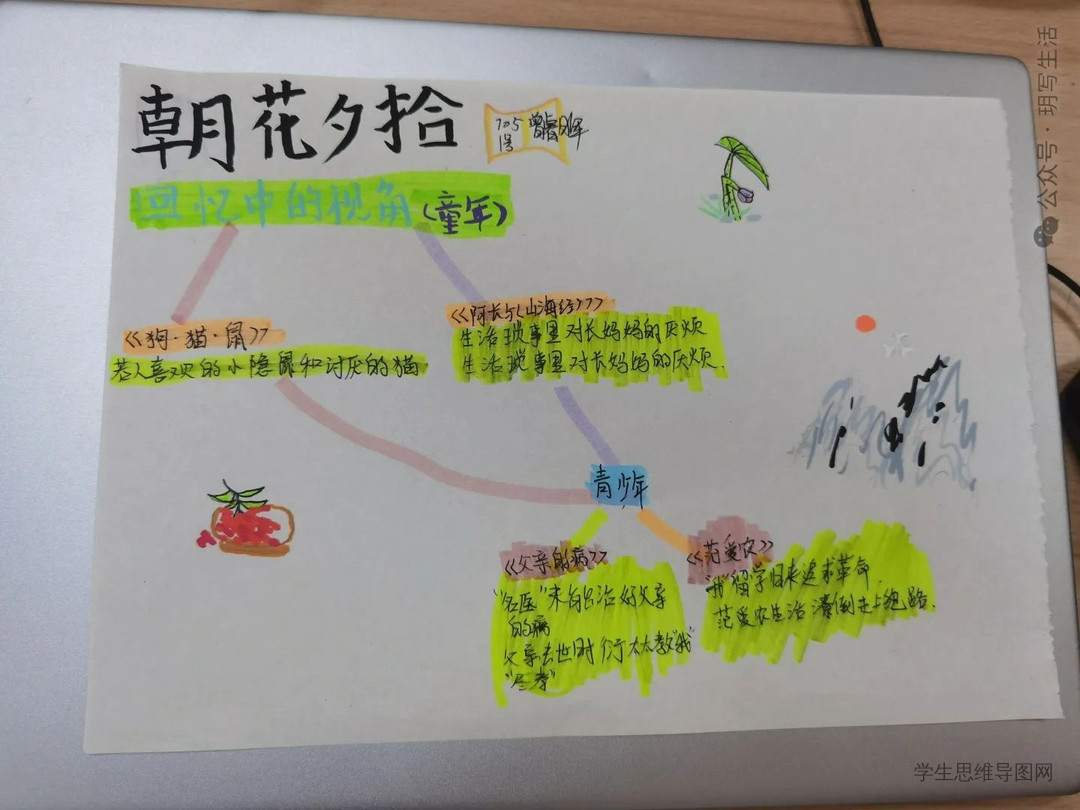 朝花夕拾
705
1号
回忆中的视角(童年)
《狗·猫·鼠》
惹人喜欢的小隐鼠和讨厌的猫
《阿长与《山海经》》
生活琐事里对长妈妈的厌烦
生活琐事里对长妈妈的厌烦.
青少年
《父亲的病》
"名医"未能治好父亲
的病
父亲去世时衍太太教"我"
"尽孝"
《范爱农》
"我"留学归来追求革命.
范爱农生活潦倒走上绝路.
公众号·玥写生活
学生思维导图网